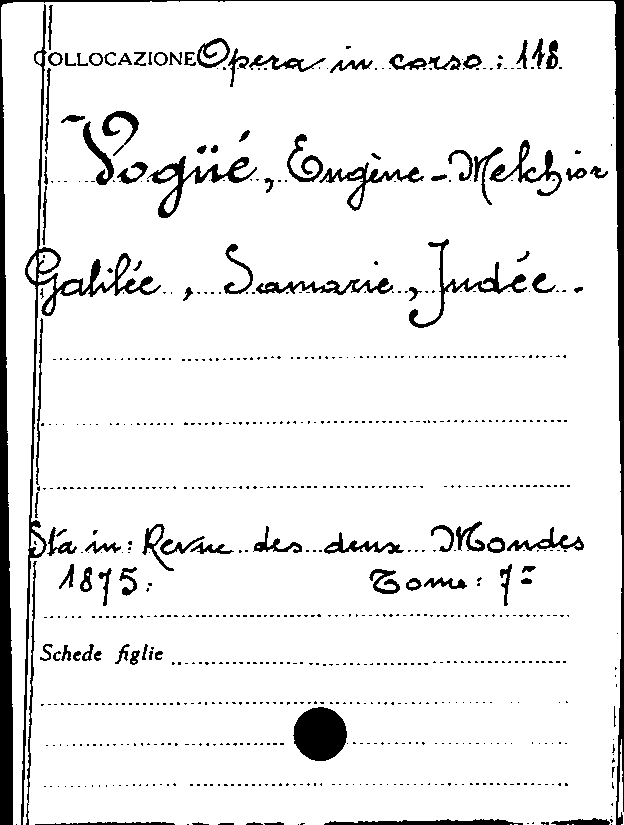 COLLOCAZIONE Opera in corso : 118
Vogüé, Eugène-Melchior
Galilée, Samarie, Judée.
Sta in: Revue des deux Mondes
1875. Tome: 7=
Schede figlie